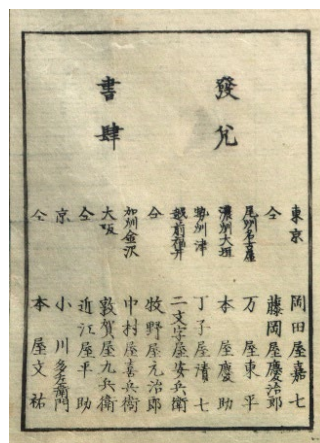 發兌
書肆
東京 岡田屋嘉七
仝 藤岡屋慶治郎
尾州名古屋 万屋東平
濃州大垣 本屋慶助
勢州津 丁子屋清七
越前福井 二文字屋安兵衛
仝 牧野屋元治郎
加州金沢 中村屋喜兵衛
大坂 敦賀屋九兵衛
仝 近江屋平助
京 小川多左衛門
仝 本屋文祐